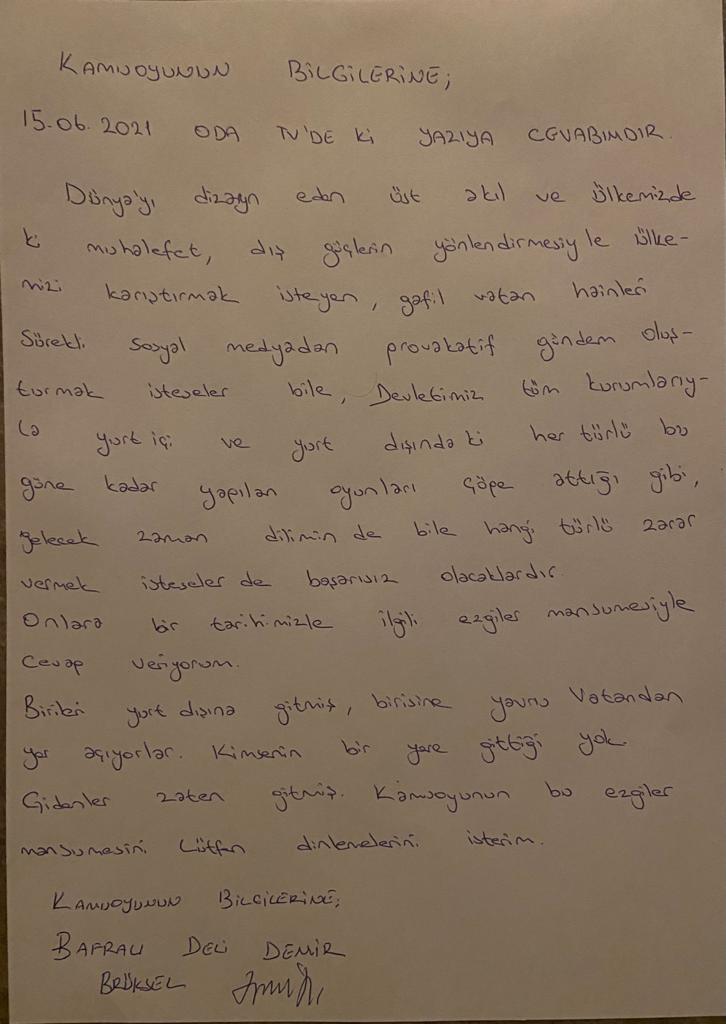 KAMUOYUNUN BİLGİLERİNE;
15.06.2021 ODA TV'DE Kİ YAZIYA CEVABIMDIR.
Dünya'yı dizayn eden üst akıl ve ülkemizde
ki muhalefet, dış güçlerin yönlendirmesiyle ülke-
mizi karıştırmak isteyen, gafil vatan hainleri
Sürekli sosyal medyadan provakatif gündem oluş-
turmak isteseler bile, Devletimiz tüm kurumlarıy-
la yurt içi ve yurt dışında ki her türlü bu
güne kadar yapılan oyunları çöpe attığı gibi,
gelecek zaman dilimin de bile hangi türlü zarar
vermek isteseler de başarısız olacaklardır.
Onlara bir tarihimizle ilgili ezgiler mansumesiyle
Cevap veriyorum.
Birileri yurt dışına gitmiş, birisine yavru Vatandan
yer açıyorlar. Kimsenin bir yere gittiği yok.
Gidenler zaten gitmiş. Kamuoyunun bu ezgiler
mansumesini Lütfen dinlemelerini isterim.
KAMUOYUNUN BİLGİLERİNE;
BAFRALI DELİ DEMİR
BRÜKSEL